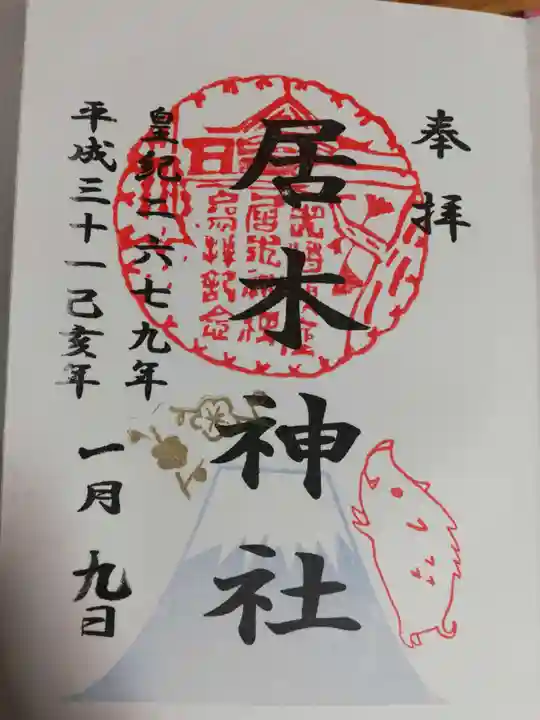 奉拝
居木神社
皇紀二六七九年
平成三十一己亥年 一月 九日